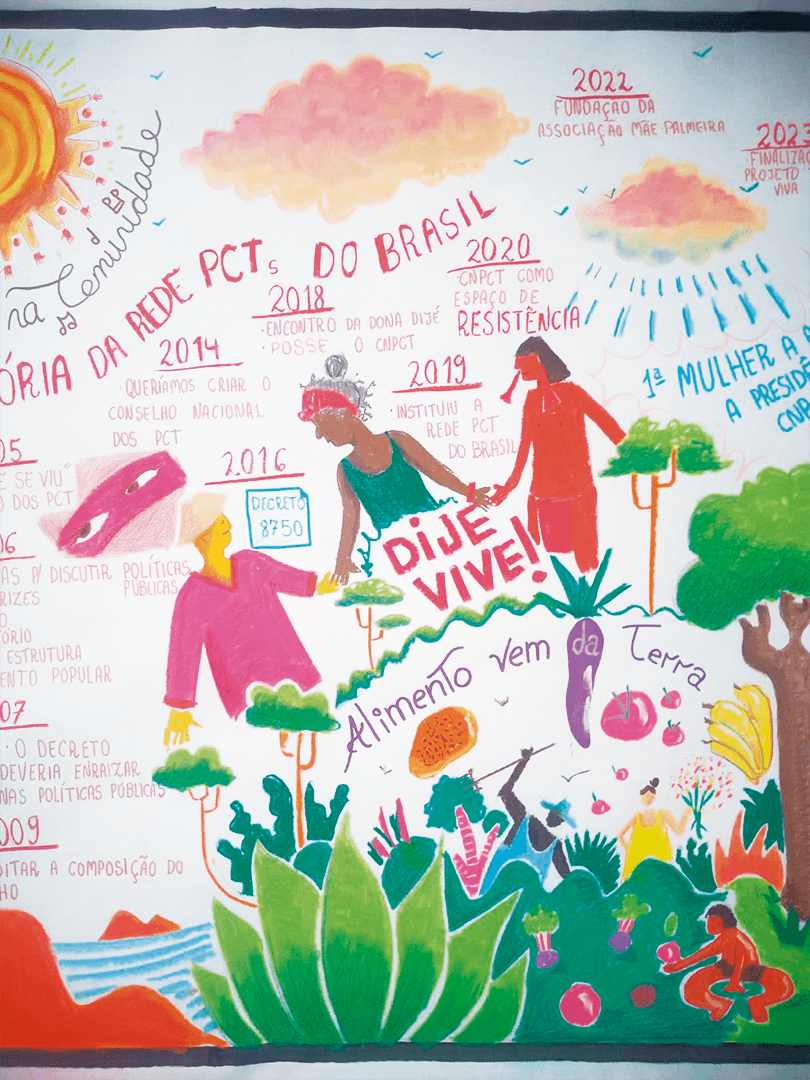 2022
FUNDAÇÃO DA
ASSOCIAÇÃO MÃE PALMEIRA
2023
FINALIZAÇ
PROJETO
VIVA
na Tenuridade
ÓRIA DA REDE PCTs DO BRASIL
2020
CNPCT COMO
ESPAÇO DE
RESISTÊNCIA
2018
·ENCONTRO DA DONA DIJÉ
·POSSE O CNPCT
2014
·QUERÍAMOS CRIAR O
CONSELHO NACIONAL
DOS PCT
2019
·INSTITUIU A
REDE PCT
DO BRASIL
1ª MULHER A
A PRESIDÊ
CNP
2016
DECRETO
8750
05
E SE VIU"
O DOS PCT
06
AS P/ DISCUTIR POLÍTICAS
PÚBLICAS
RIZES
O
ÓRIO
ESTRUTURA
ENTO POPULAR
07
·O DECRETO
DEVERIA ENRAIZAR
NAS POLÍTICAS PÚBLICAS
009
DITAR A COMPOSIÇÃO DO
HO
DIJÉ
VIVE!
Alimento vem da Terra